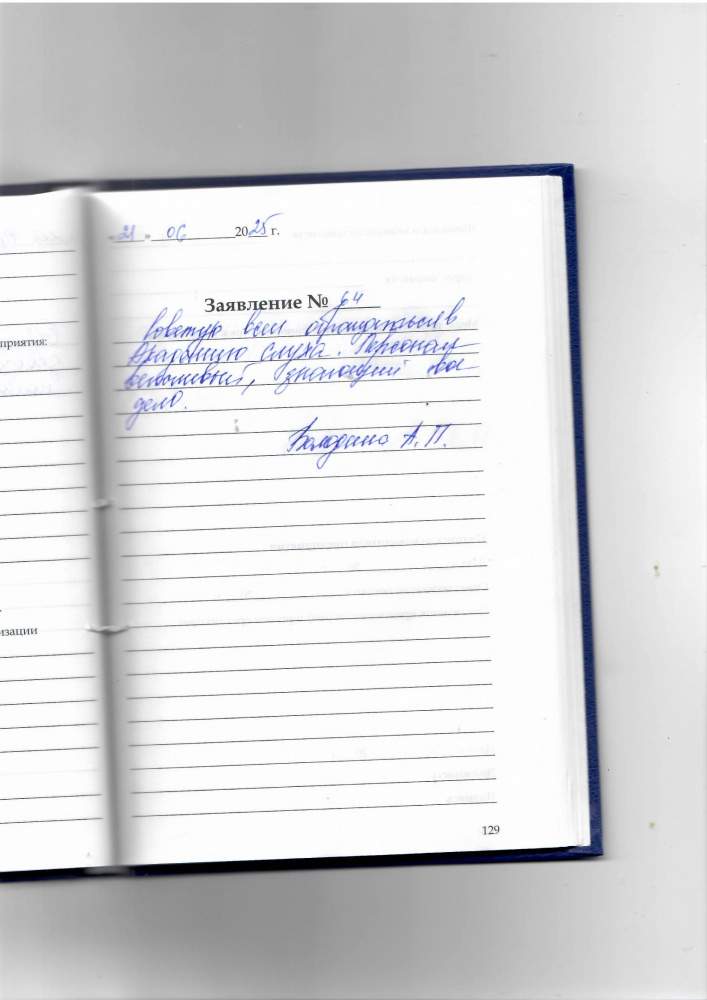 «21» 06 2025 г.
Заявление № 64
Советую всем обращаться в
Академию слуха. Персонал
вежливый, знающий свое
дело.
Володина А. П.
приятия:
изации
129